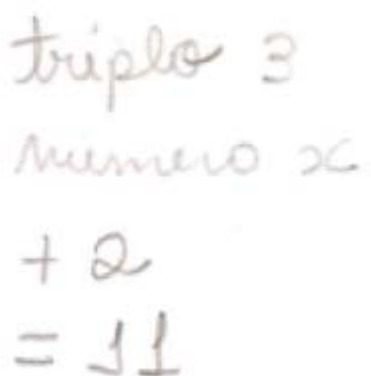 triplo 3
número x
+ 2
= 11